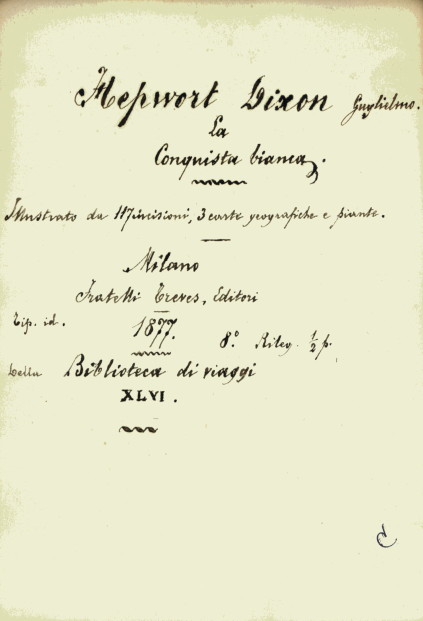 Hepwort Dixon Guglielmo.
La
Conquista bianca.
Illustrato da 117 incisioni, 3 carte geografiche e piante.
Milano
Fratelli Treves, Editori
Tip. id.
1877.
8º. Rileg. ½ p.
Della Biblioteca di viaggi
XLVI.
C